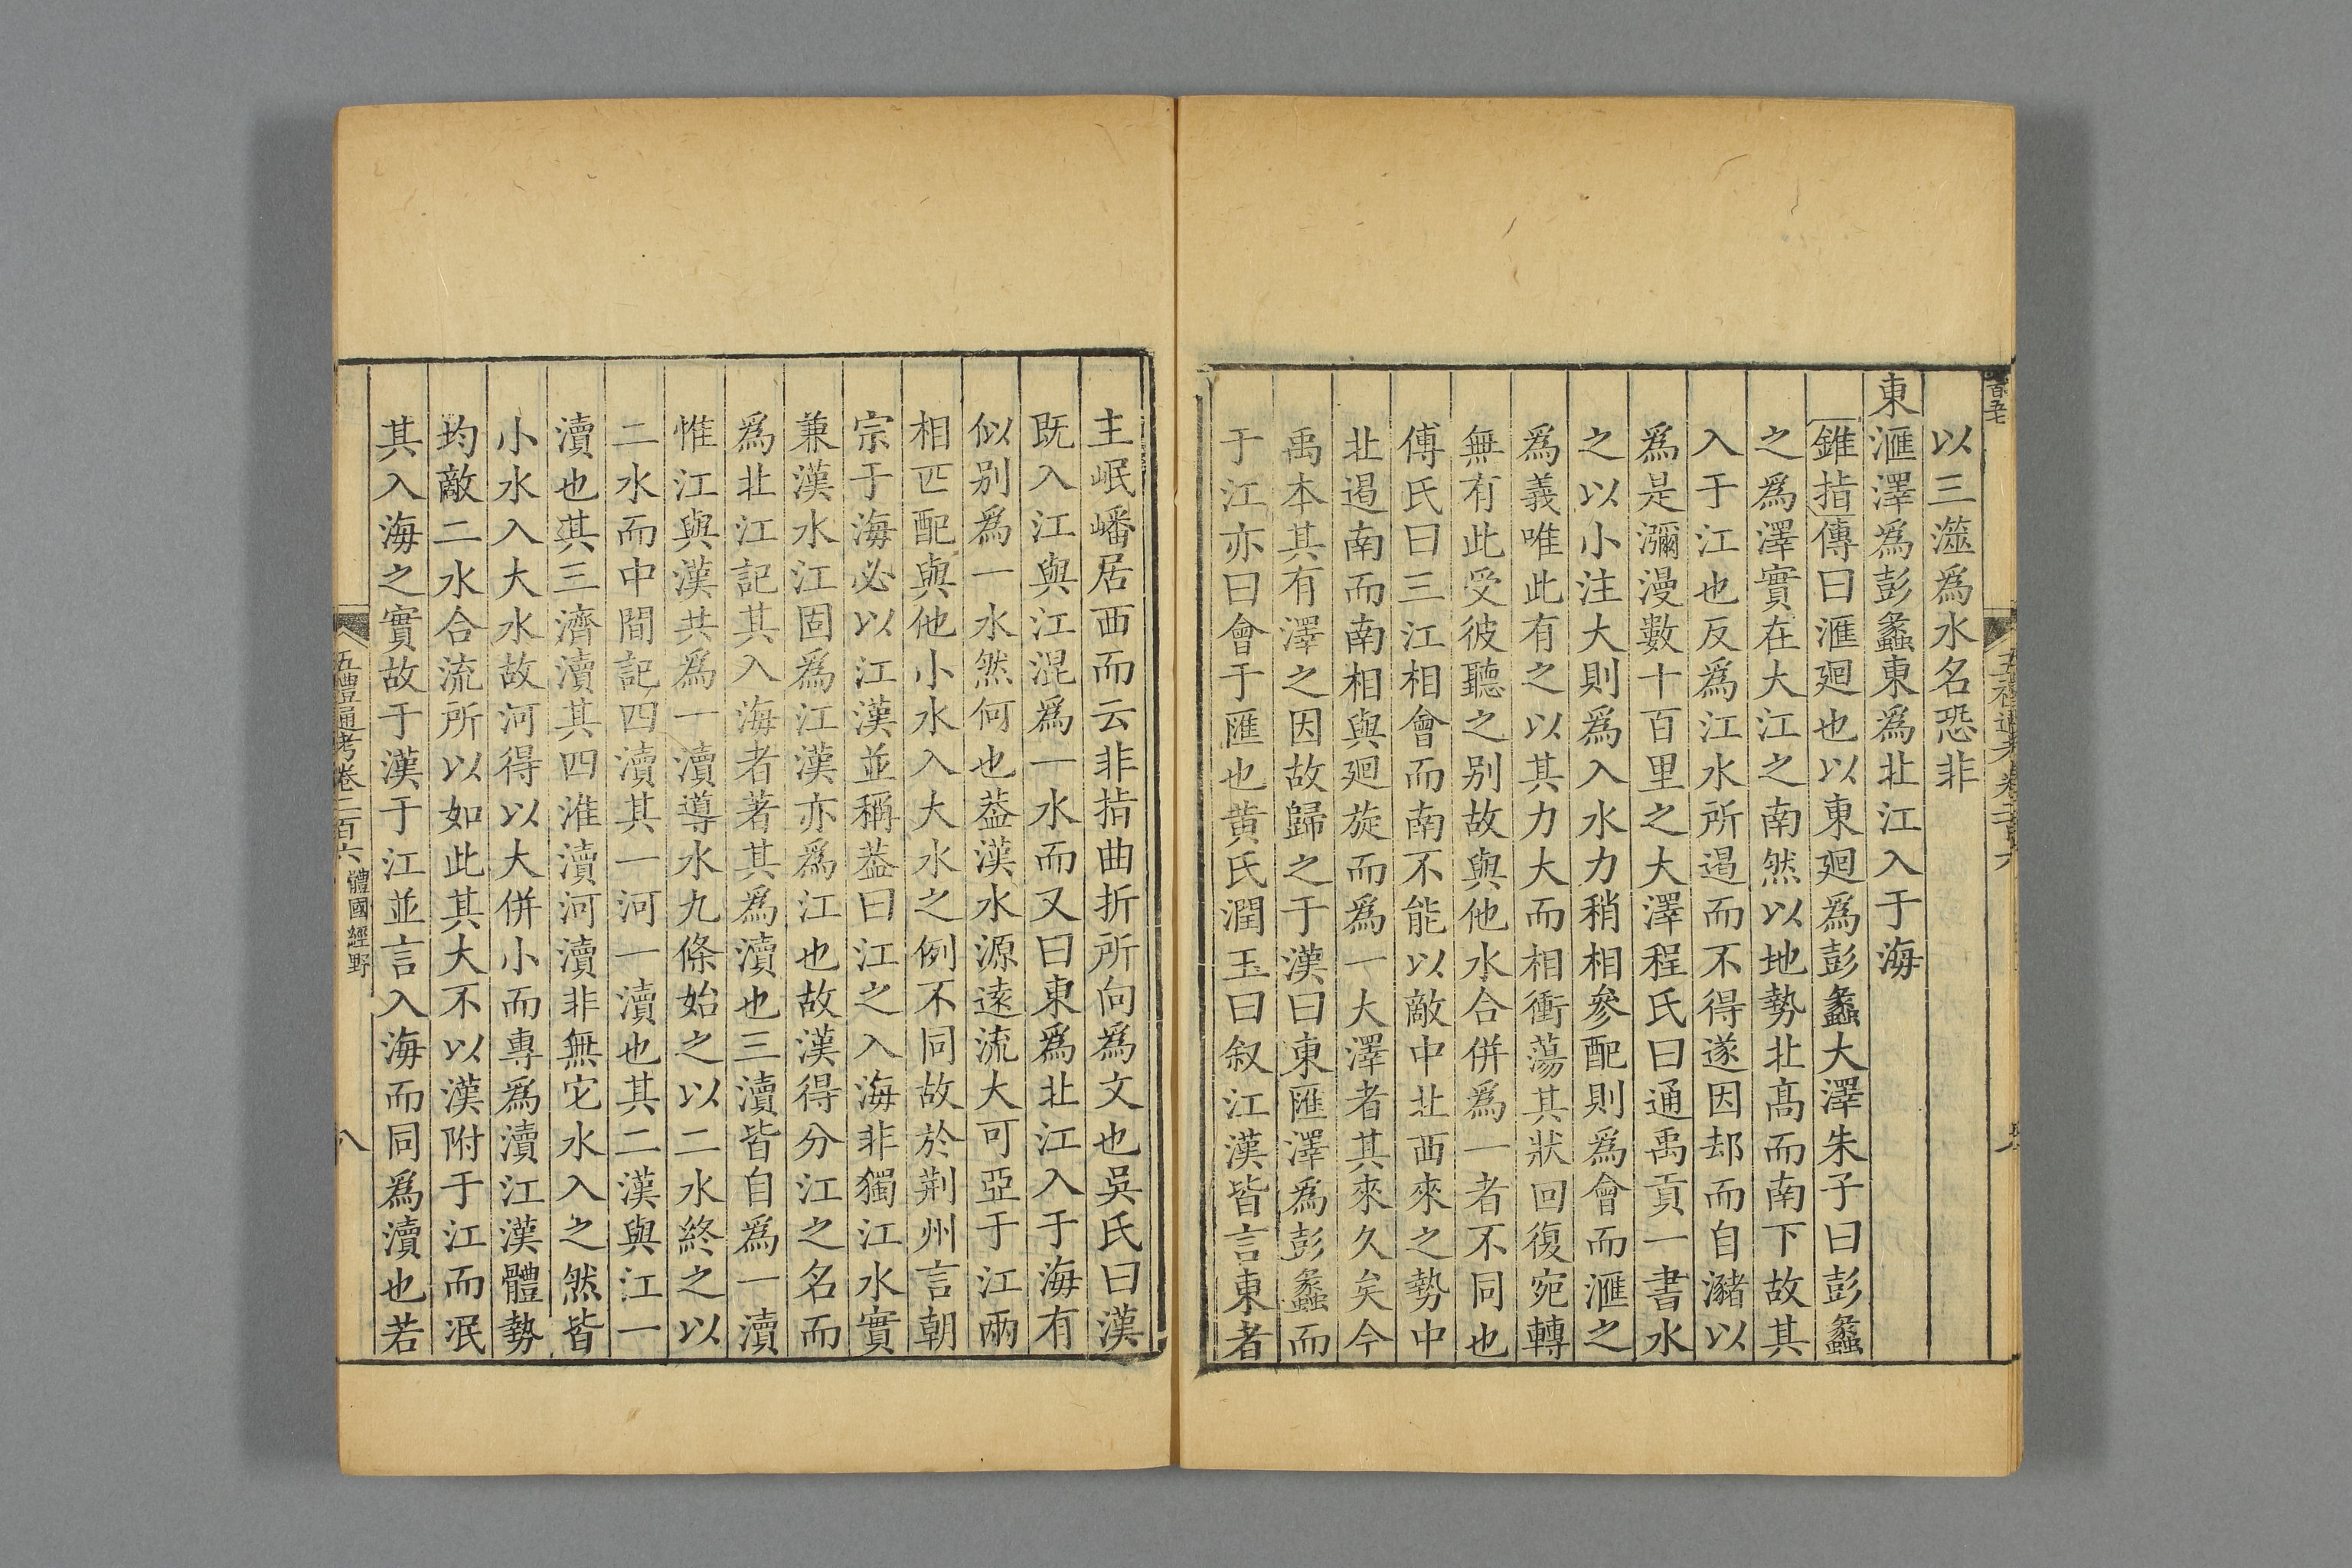 以三澨爲水名恐非
東滙澤爲彭蠡東爲北江入于海
錐指傳曰滙廻也以東廻爲彭蠡大澤朱子曰彭蠡
之爲澤實在大江之南然以地勢北髙而南下故其
入于江也反爲江水所遏而不得遂因却而自瀦以
爲是瀰漫數十百里之大澤程氏曰通禹貢一書水
之以小注大則爲入水力稍相參配則爲會而滙之
爲義唯此有之以其力大而相衝蕩其狀回復宛轉
無有此受彼聽之别故與他水合併爲一者不同也
傅氏曰三江相會而南不能以敵中北西來之勢中
北遏南而南相與廻旋而爲一大澤者其來久矣今
禹本其有澤之因故歸之于漢曰東匯澤爲彭蠡而
于江亦曰會于匯也黄氏潤玉曰叙江漢皆言東者
主岷嶓居西而云非㧖曲折所向爲文也吳氏曰漢
既入江與江混爲一水而又曰東爲北江入于海有
似别爲一水然何也葢漢水源遠流大可亞于江兩
相匹配與他小水入大水之例不同故於荆州言朝
宗于海必以江漢並稱葢曰江之入海非獨江水實
兼漢水江固爲江漢亦爲江也故漢得分江之名而
爲北江記其入海者著其爲瀆也三瀆皆自爲一瀆
惟江與漢共爲一瀆導水九條始之以二水終之以
二水而中間記四瀆其一河一瀆也其二漢與江一
瀆也其三濟瀆其四淮瀆河瀆非無它水入之然皆
小水入大水故河得以大併小而專爲瀆江漢體勢
均敵二水合流所以如此其大不以漢附于江而泯
其入海之實故于漢于江並言入海而同爲瀆也若
五禮通考卷二百六 體國經野
八